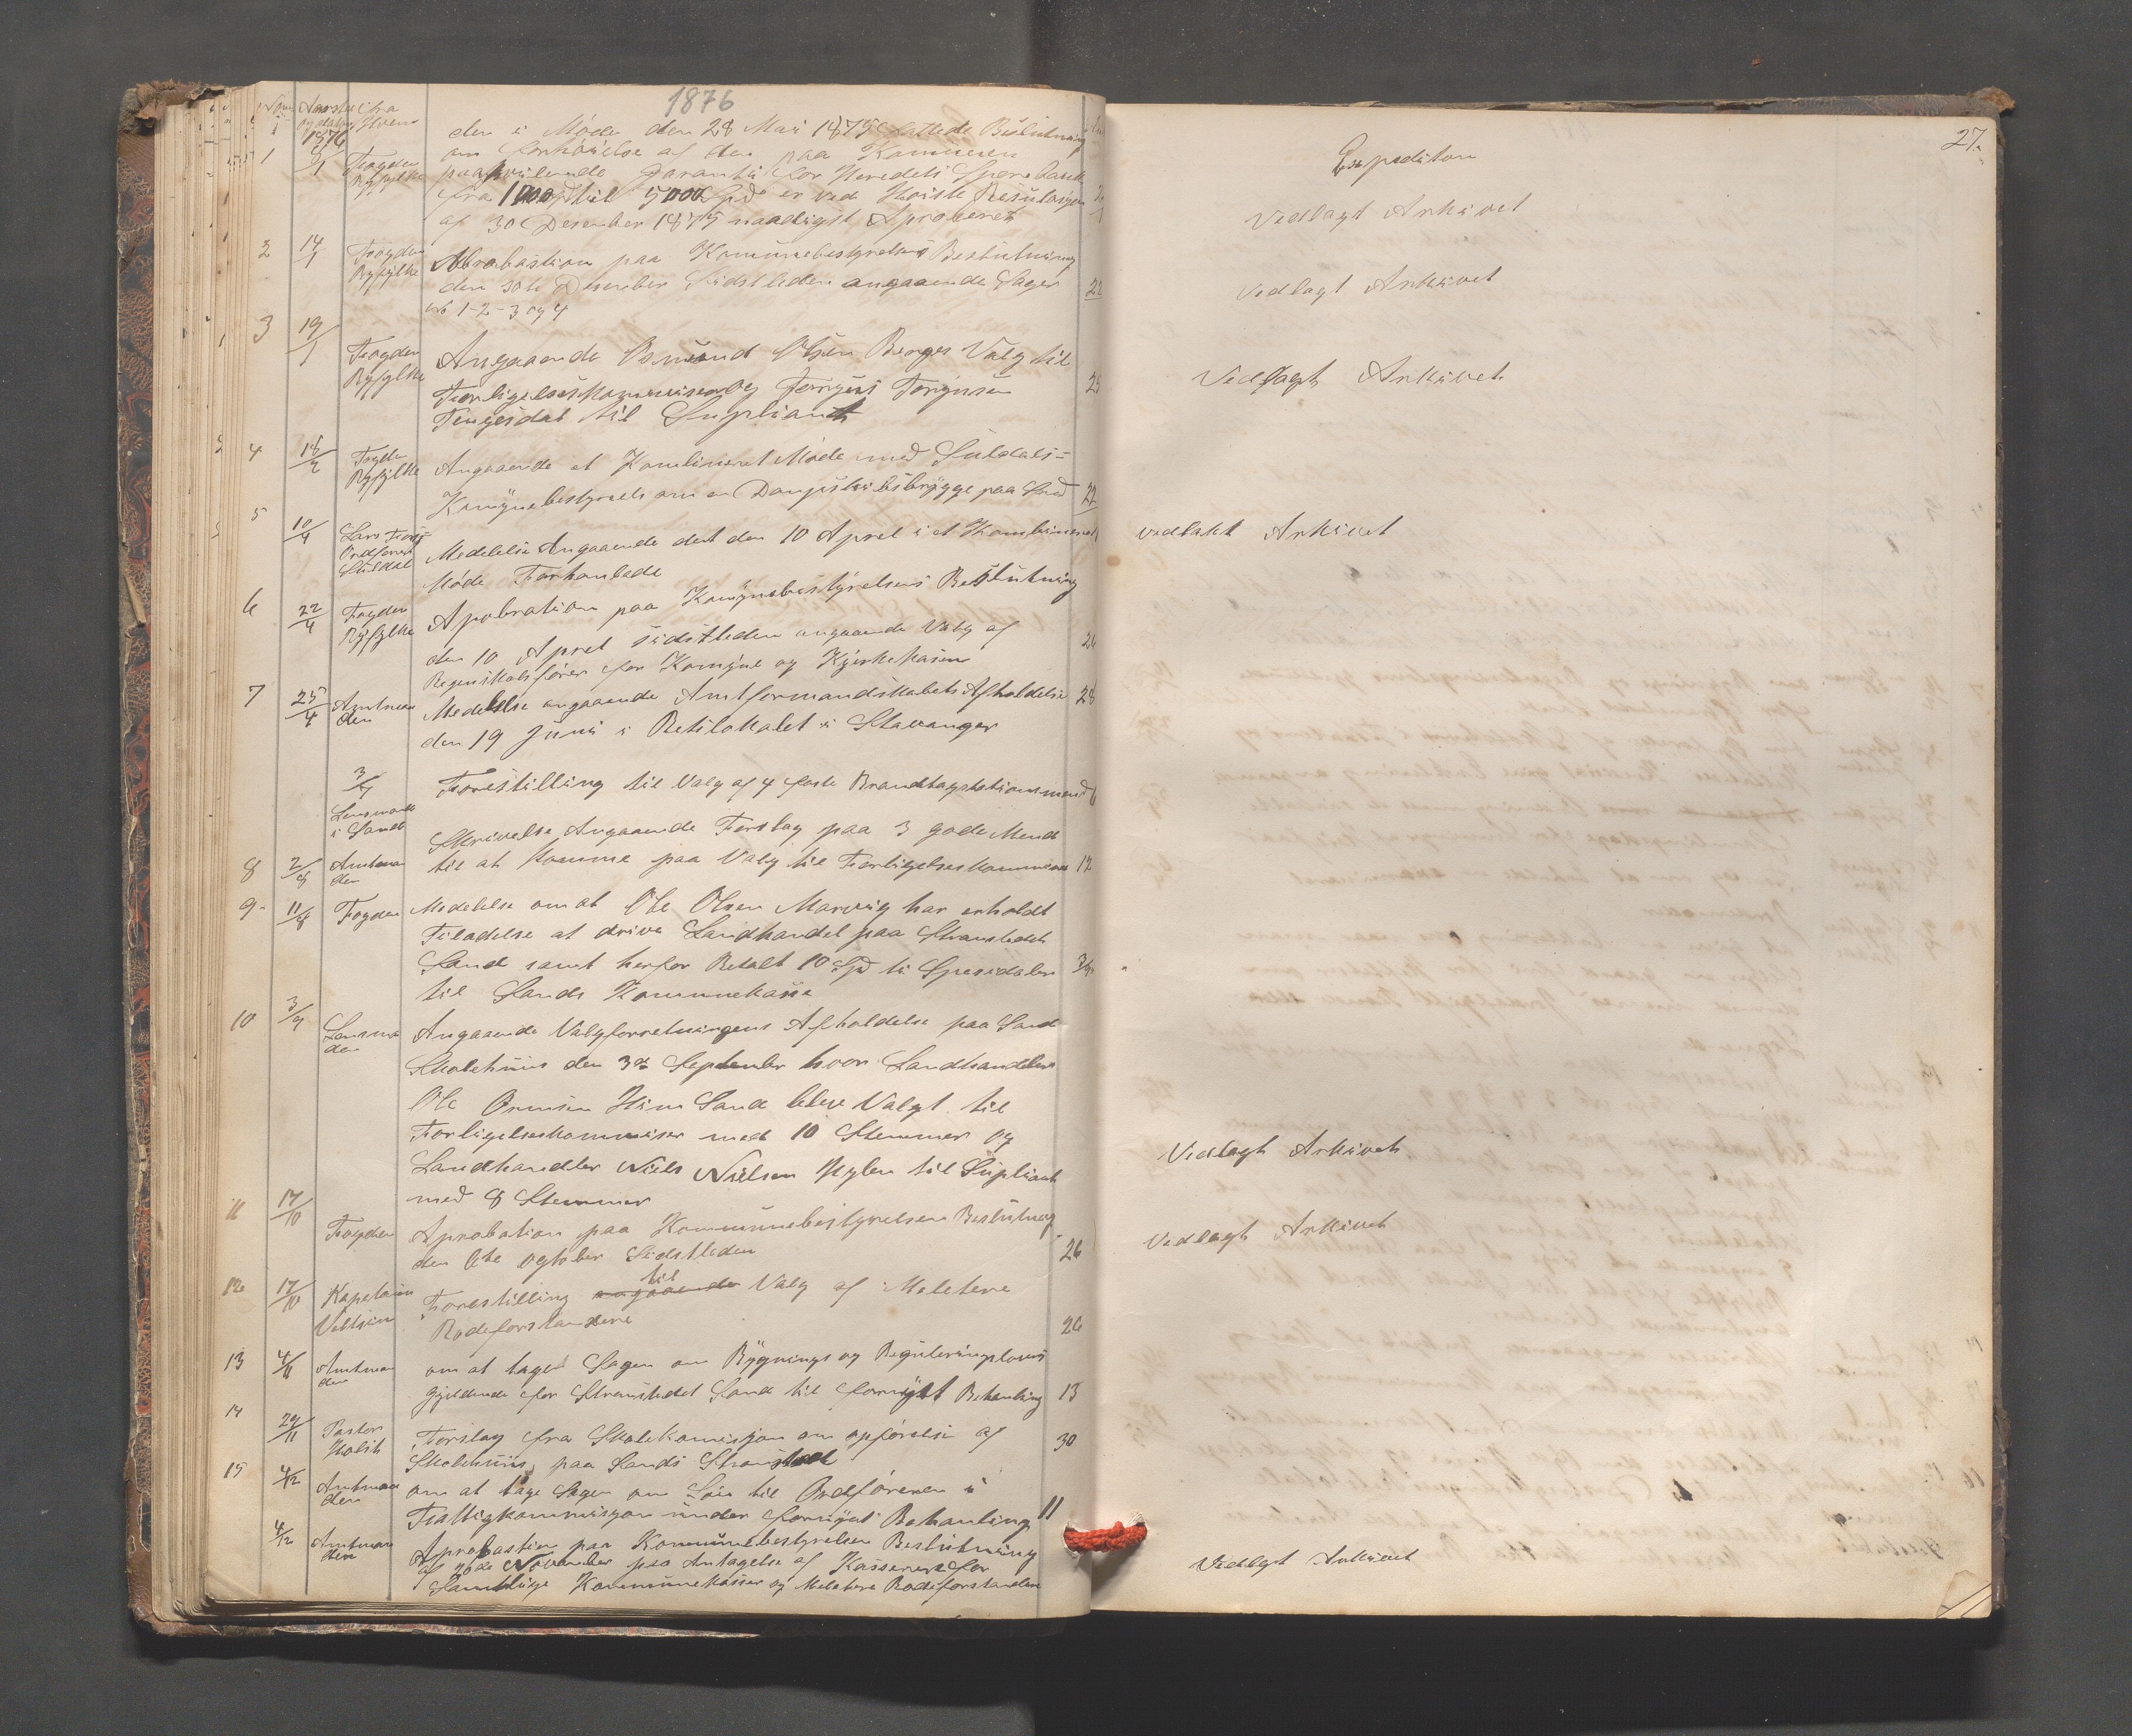 1876
Num Aarstal ifra
og datum Hvem
1876
den i Møde den 28 Mai 1875 fattede Beslutning
1 Fogden om forhøielse af den paa Komunen
Ryfylke paahvilende Garanti for Heredets Sparebank
fra 1000 Spd til 5000 Spd er ved Høiste Resulusjon
af 30 Desember 1875 naadigst Aproberet
2 14/1 Fogden Abrobastion paa Komunebestyrelsens Beslutning
Ryfylke den 30te Desember Sidstleden angaaende Sager 22
No 1-2-3 og 4
3 19/1 Fogden Angaaende Osmund Olsen Berges Valg til
Ryfylke Forligelseskommisær og Torgius Torgiusen 25
Tengesdal til Supliant
4 18/2 Fogden Angaaende et Kombineret Møde med Suldals-
Ryfylke Komunebestyrels om en Dampskibsbrygge paa Sand 22
5 10/4 Lars
Ordfører Medelelse Angaaende det den 10 Aprel i et Kombineret
Suldal Møde Forhanlede
6 22/4 Fogden Apobration paa Komynebestyrelsens Beslutning
Ryfylke den 10 Aprel sidstleden angaaende Valg af 26
Regenskabsfører for Komyne og Kyrkekasen
7 25/4 Amtman Medelelse angaaende Amtformandskabets Afholdelse 28
den den 19 Juni i Retslokalet i Stavanger
Forestilling til Valg af 4 faste Brandtagstationsmend
Lensmand
i Sand Skrivelse Angaaende Forslag paa 3 gode Mend
8 2/8 Amtman til at komme paa Valg til Forligelseskommisær 12
den
9- 11/8 Fogden Medelelse om at Ole Olsen Marvig har erholdt
Tiladelse at drive Landhandel paa Stranstedet
Sand samt herfor Betalt 10 Spd ti Spesidaler
til Sands Kommunekasse
10 3/9 Lensma Angaaende Valgforretningens Afholdelse paa Sand
den Skolehuus den 3die September hvor Landhandler
Ole Osmusen Hiim Sand bleve Valgt til
Forligelseskommisær med 10 Stemmer og
Landhandler Niels Nielsen Hylen til Supliant
med 8 Stemmer
11 17/10 Fogden Aprobation paa Kommunebestyrelsens Beslutning
den 6te Ogtober Sidstleden 26
12 17/10 Kapetain Forestilling angaaende til Valg af Meletere
Rodeforstandere 26
13 4/11 Amtman om at tage Sagen om Bygnings og Reguleringslovens
den gjeldende for Strenstedet Sand til fornyet Behanling 13
14 29/11 Pastor Forslag fra Skolekomisjon om opførelse af 30
Skolehuus paa Sands Stransted
15 4/12 Amtman om at tage Sagen om Løn til Ordføreren i
den Fattigkommisjon under fornyet Behanling 11
4/12 Amtman Aprobastion paa Kommunebestyrelsens Beslutning
den af November paa Antagelse af Kasserere for
Samtlige Kommunekasser og Meletere Rodeforstander
27.
Expedition
Vedlagt Arkivet
Vedlagt Arkivet
Vedlagt Arkivet
Vedlakt Arkivet
Vedlagt Arkivet
Vedlagt Arkivet
Vedlagt Arkivet